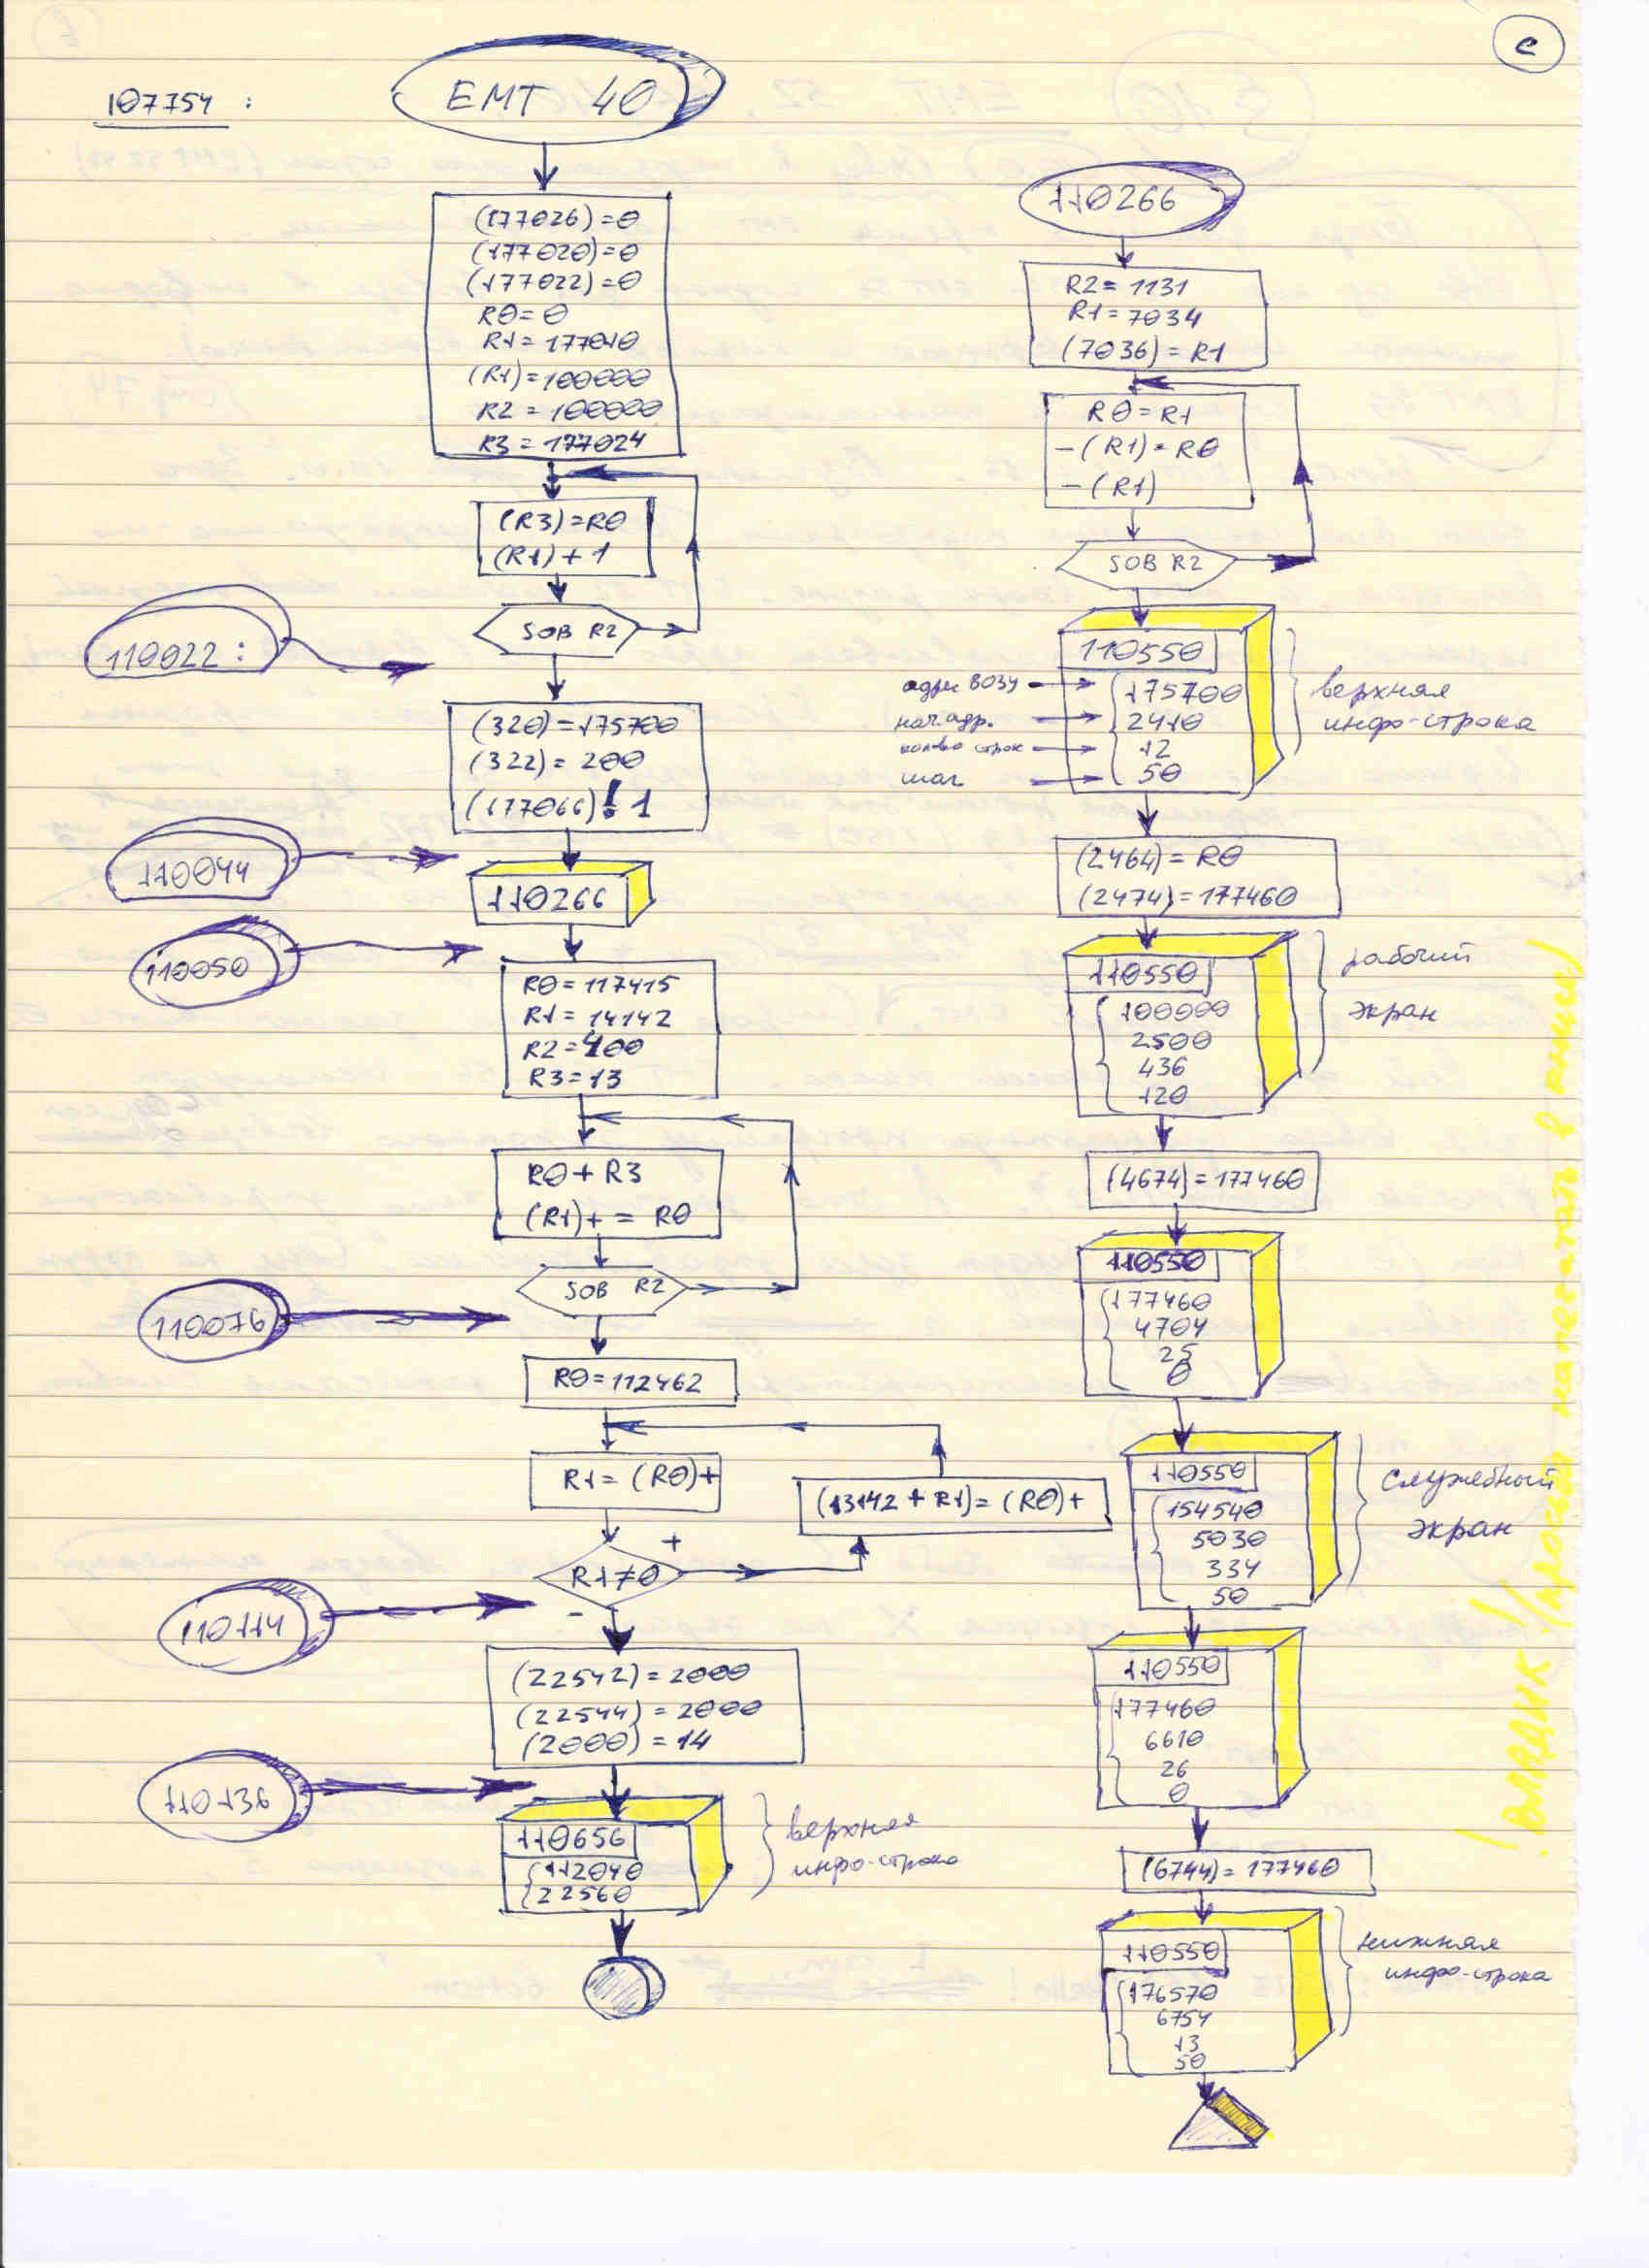 c
107754 :
EMT 40
(177026)=0
(177020)=0
(177022)=0
R0=0
R1=177010
(R1)=100000
R2=100000
R3=177024
(R3)=R0
(R1)+1
SOB R2
110022:
(320)=175700
(322)=200
(177066)!1
110044
110266
110050
R0=117415
R1=14142
R2=400
R3=13
R0+R3
(R1)+=R0
SOB R2
110076
R0=112462
R1=(R0)+
(13142+R1)=(R0)+
R1≠0
+
-
110114
(22542)=2000
(22544)=2000
(2000)=14
110136
110656
112040
22560
верхняя
инфо-строка
110266
R2=1131
R1=7034
(7036)=R1
R0=R1
-(R1)=R0
-(R1)
SOB R2
110550
адрес ВОЗУ
175700
нач. адр.
2410
кол-во строк
12
шаг
50
верхняя
инфо-строка
(2464)=R0
(2474)=177460
110550
100000
2500
436
120
рабочий
экран
(4674)=177460
110550
177460
4704
25
0
110550
154540
5030
334
50
служебный
экран
110550
177460
6610
26
0
(6744)=177460
110550
176570
6754
13
50
нижняя
инфо-строка
! ВЛАДИК ! (просьба напечатать в книгу)